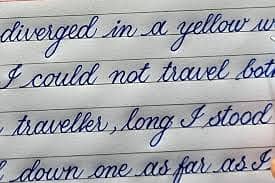 diverged in a yellow w
I could not travel bot
traveller, long I stood
down one as far as I